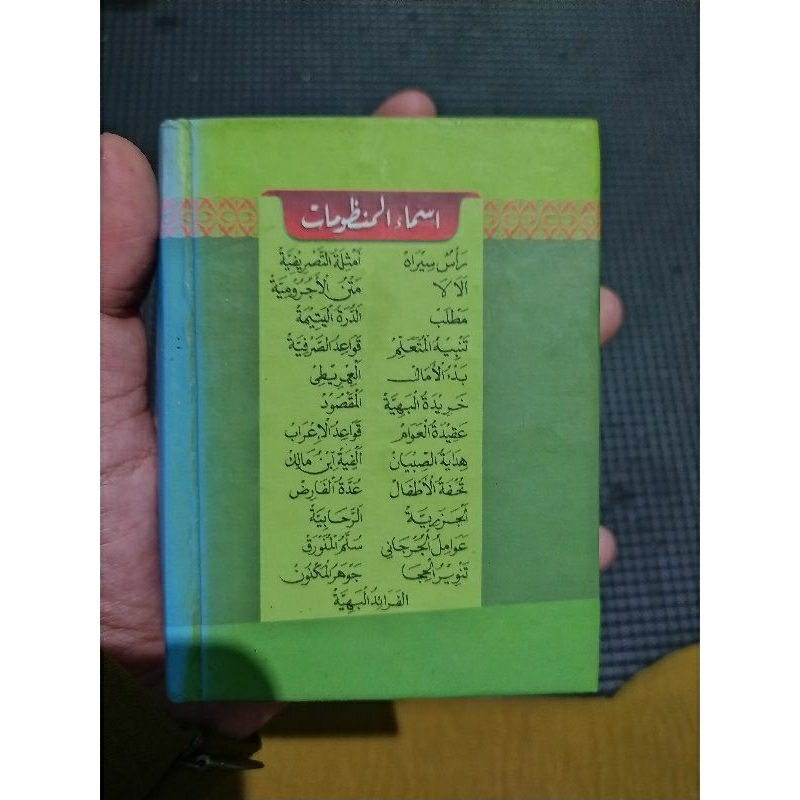 اسماء المنظومات
رَأْسْ سِيْرَاهْ أَمْثِلَةُ التَّصْرِيْفِيَّةْ
اَلَالَا مَتْنُ الْأَجُرُوْمِيَّةْ
مَطْلَبْ اَلدُّرَةُ الْيَتِيْمَةْ
تَنْبِيْهُ الْمُتَعَلِّمْ قَوَاعِدُ الصَّرْفِيَّةْ
بَدْءُ الْأَمَالِى اَلْعِمْرِيْطِىْ
خَرِيْدَةُ الْبَهِيَّةْ اَلْمَقْصُوْدْ
عَقِيْدَةُ الْعَوَامْ قَوَاعِدُ الْإِعْرَابْ
هِدَايَةُ الصِّبْيَانْ اَلْفِيَةْ اِبْنُ مَالِكْ
تُحْفَةُ الْأَطْفَالْ عُدَّةُ الْفَارِضْ
اَلْجَزَرِيَّةْ اَلرَّحَابِيَّةْ
عَوَامِلُ الْجُرْجَانِي سُلَّمُ الْمُنَوْرَقْ
تَنْوِيْرُ الْحِجَا جَوْهَرُ الْمَكْنُوْنْ
اَلْفَرَائِدُ الْبَهِيَّةْ